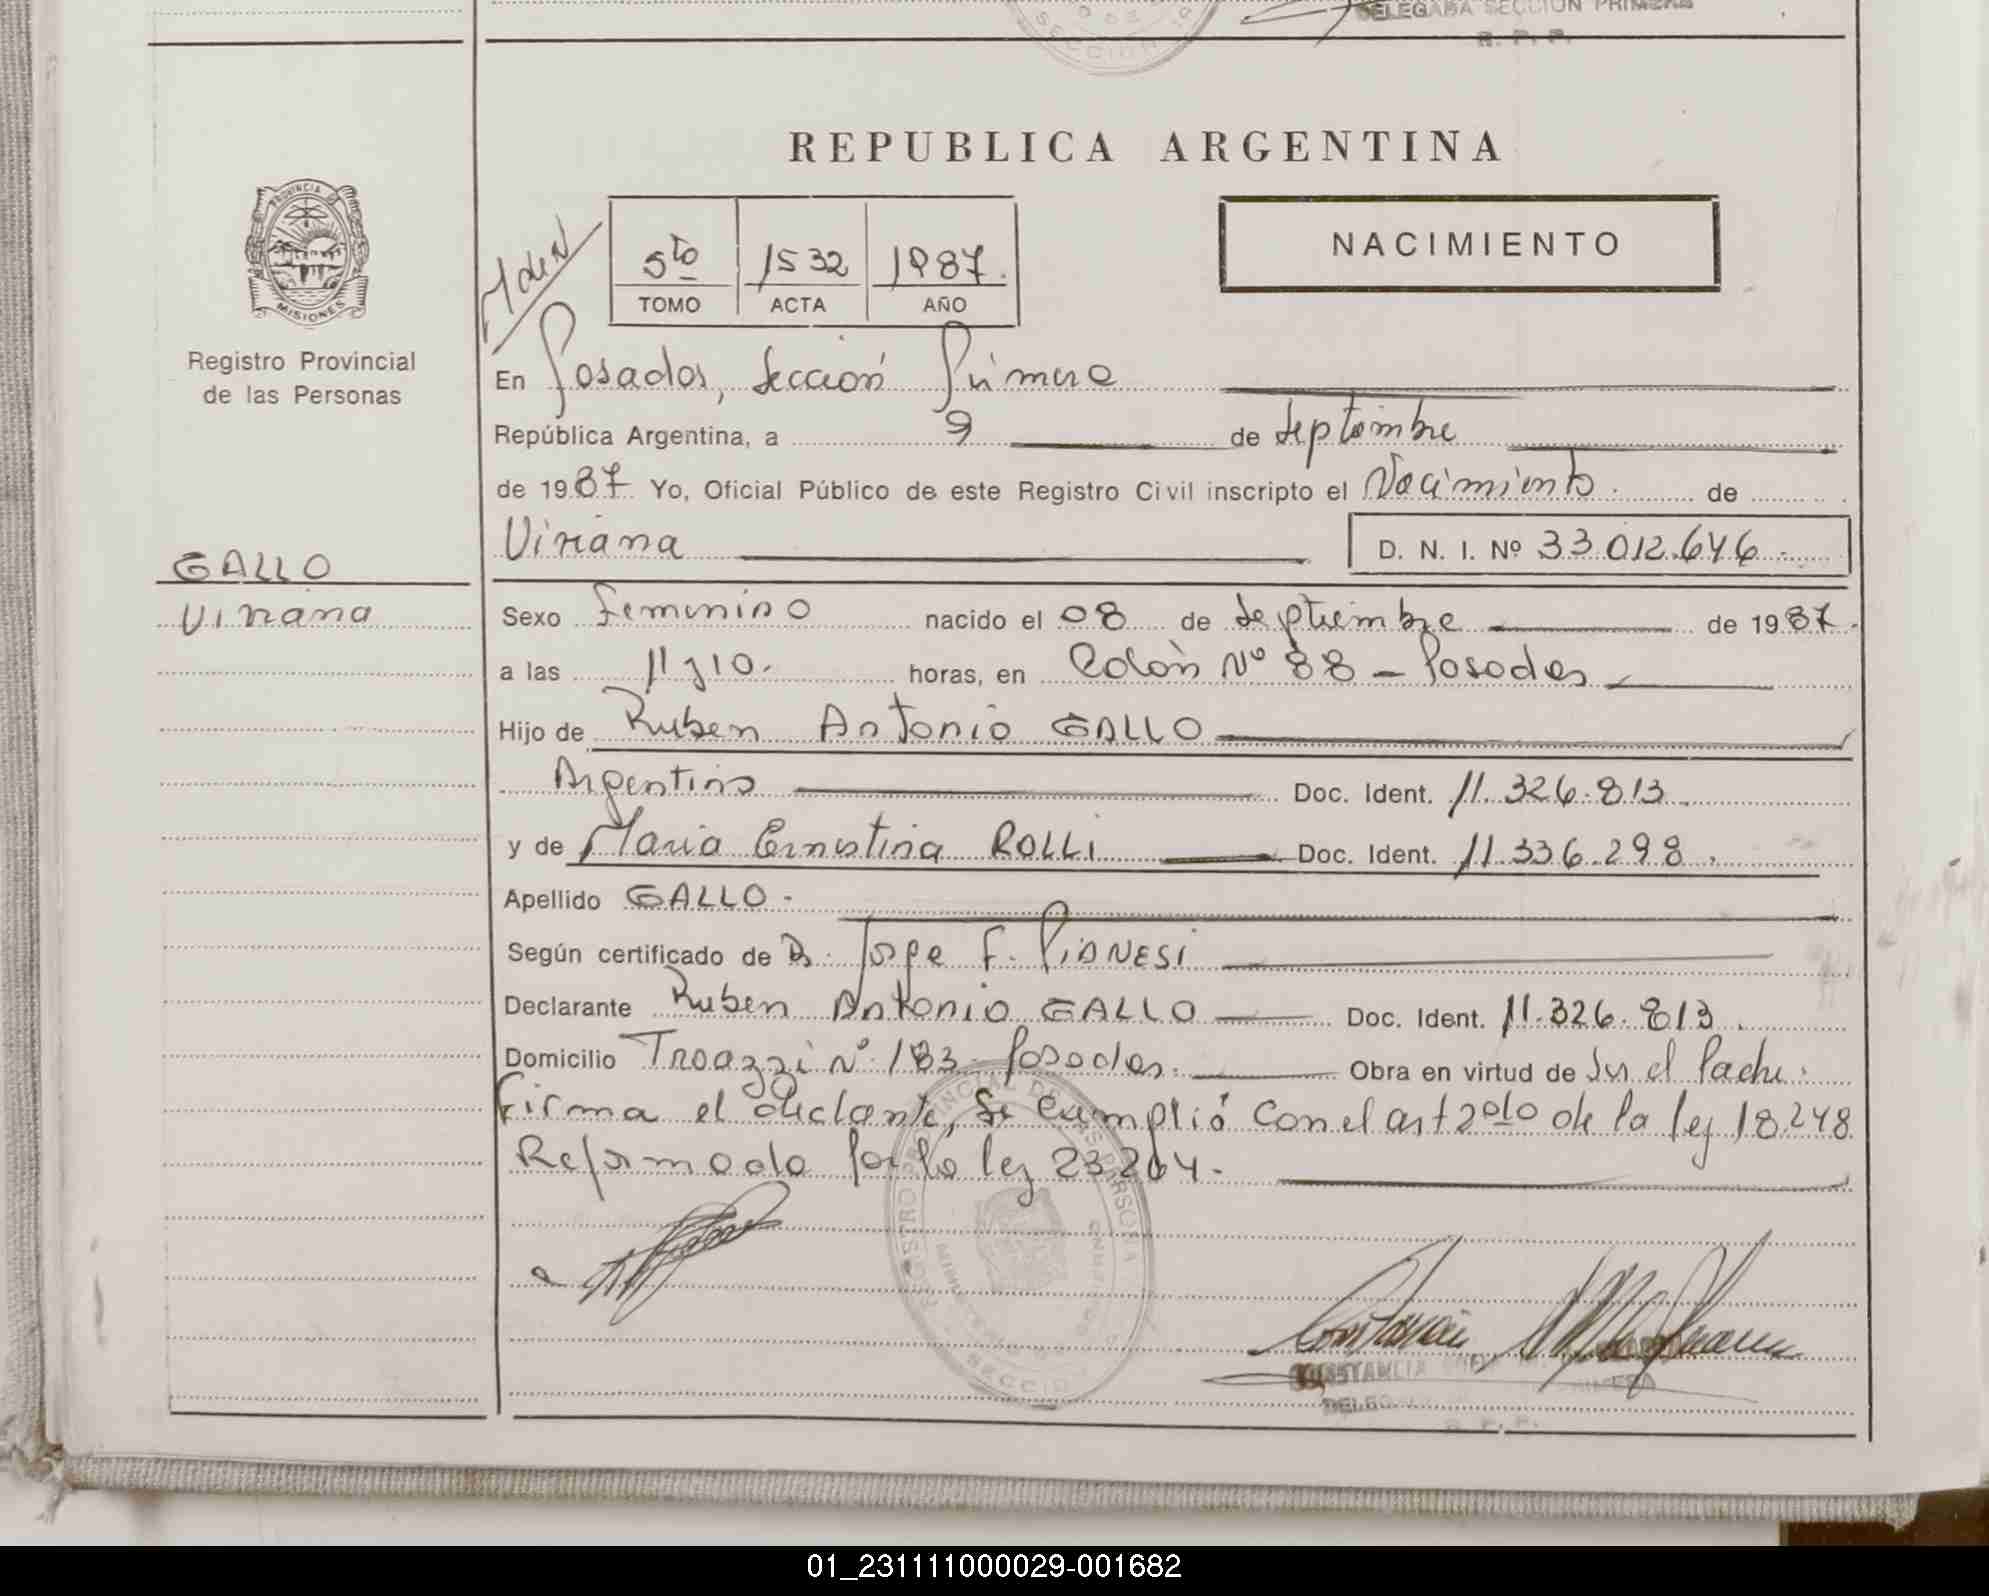 DELEGADA SECCION PRIMERA
R. P. P.
SECCION
REPUBLICA ARGENTINA
PROVINCIA
MISIONES
Registro Provincial
de las Personas
5to 1532 1987.
TOMO ACTA AÑO
NACIMIENTO
En Posadas, Sección Primera
República Argentina, a 9 de Septiembre
de 1987. Yo, Oficial Público de este Registro Civil inscripto el Nacimiento. de
Viviana D. N. I. Nº 33.012.646.-
GALLO
Viviana
Sexo Femenino nacido el 08 de Septiembre de 1987.
a las 11 y 10. horas, en Colón Nº 88 - Posadas
Hijo de Ruben Antonio GALLO
Argentino Doc. Ident. 11.326.813.
y de Maria Ernestina ROLLI Doc. Ident. 11.336.298.
Apellido GALLO.-
Según certificado de Dr. Jorge F. PIANESI
Declarante Ruben Antonio GALLO Doc. Ident. 11.326.813.
Domicilio Nº 183 - Posadas. Obra en virtud de Ser el Padre.
Firma el declante, Se cumplió con el art 2do de la ley 18.248
Reformado por la ley 23264.-
SECCION
CONSTANCIA
R. P. P.
01_231111000029-001682